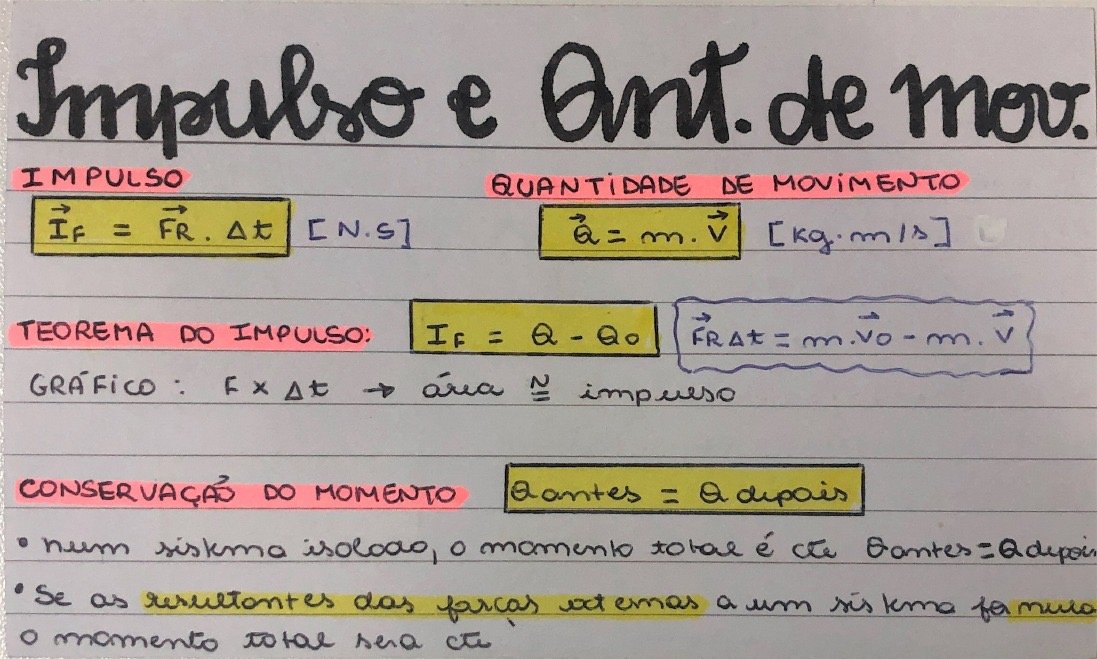 Impulso e Qnt. de mov.
IMPULSO
QUANTIDADE DE MOVIMENTO
I⃗F = F⃗R . Δt [N.S]
Q⃗ = m.V⃗ [kg.m/s]
TEOREMA DO IMPULSO: IF = Q - Qo F⃗RΔt = m.V⃗o - m.V⃗
GRÁFICO: F x Δt → área ≅ᴺ impulso
CONSERVAÇÃO DO MOMENTO Qantes = Qdepois
• num sistema isolado, o momento total é cte Qantes = Qdepois
• Se as resultantes das forças externas a um sistema for nula
o momento total será cte